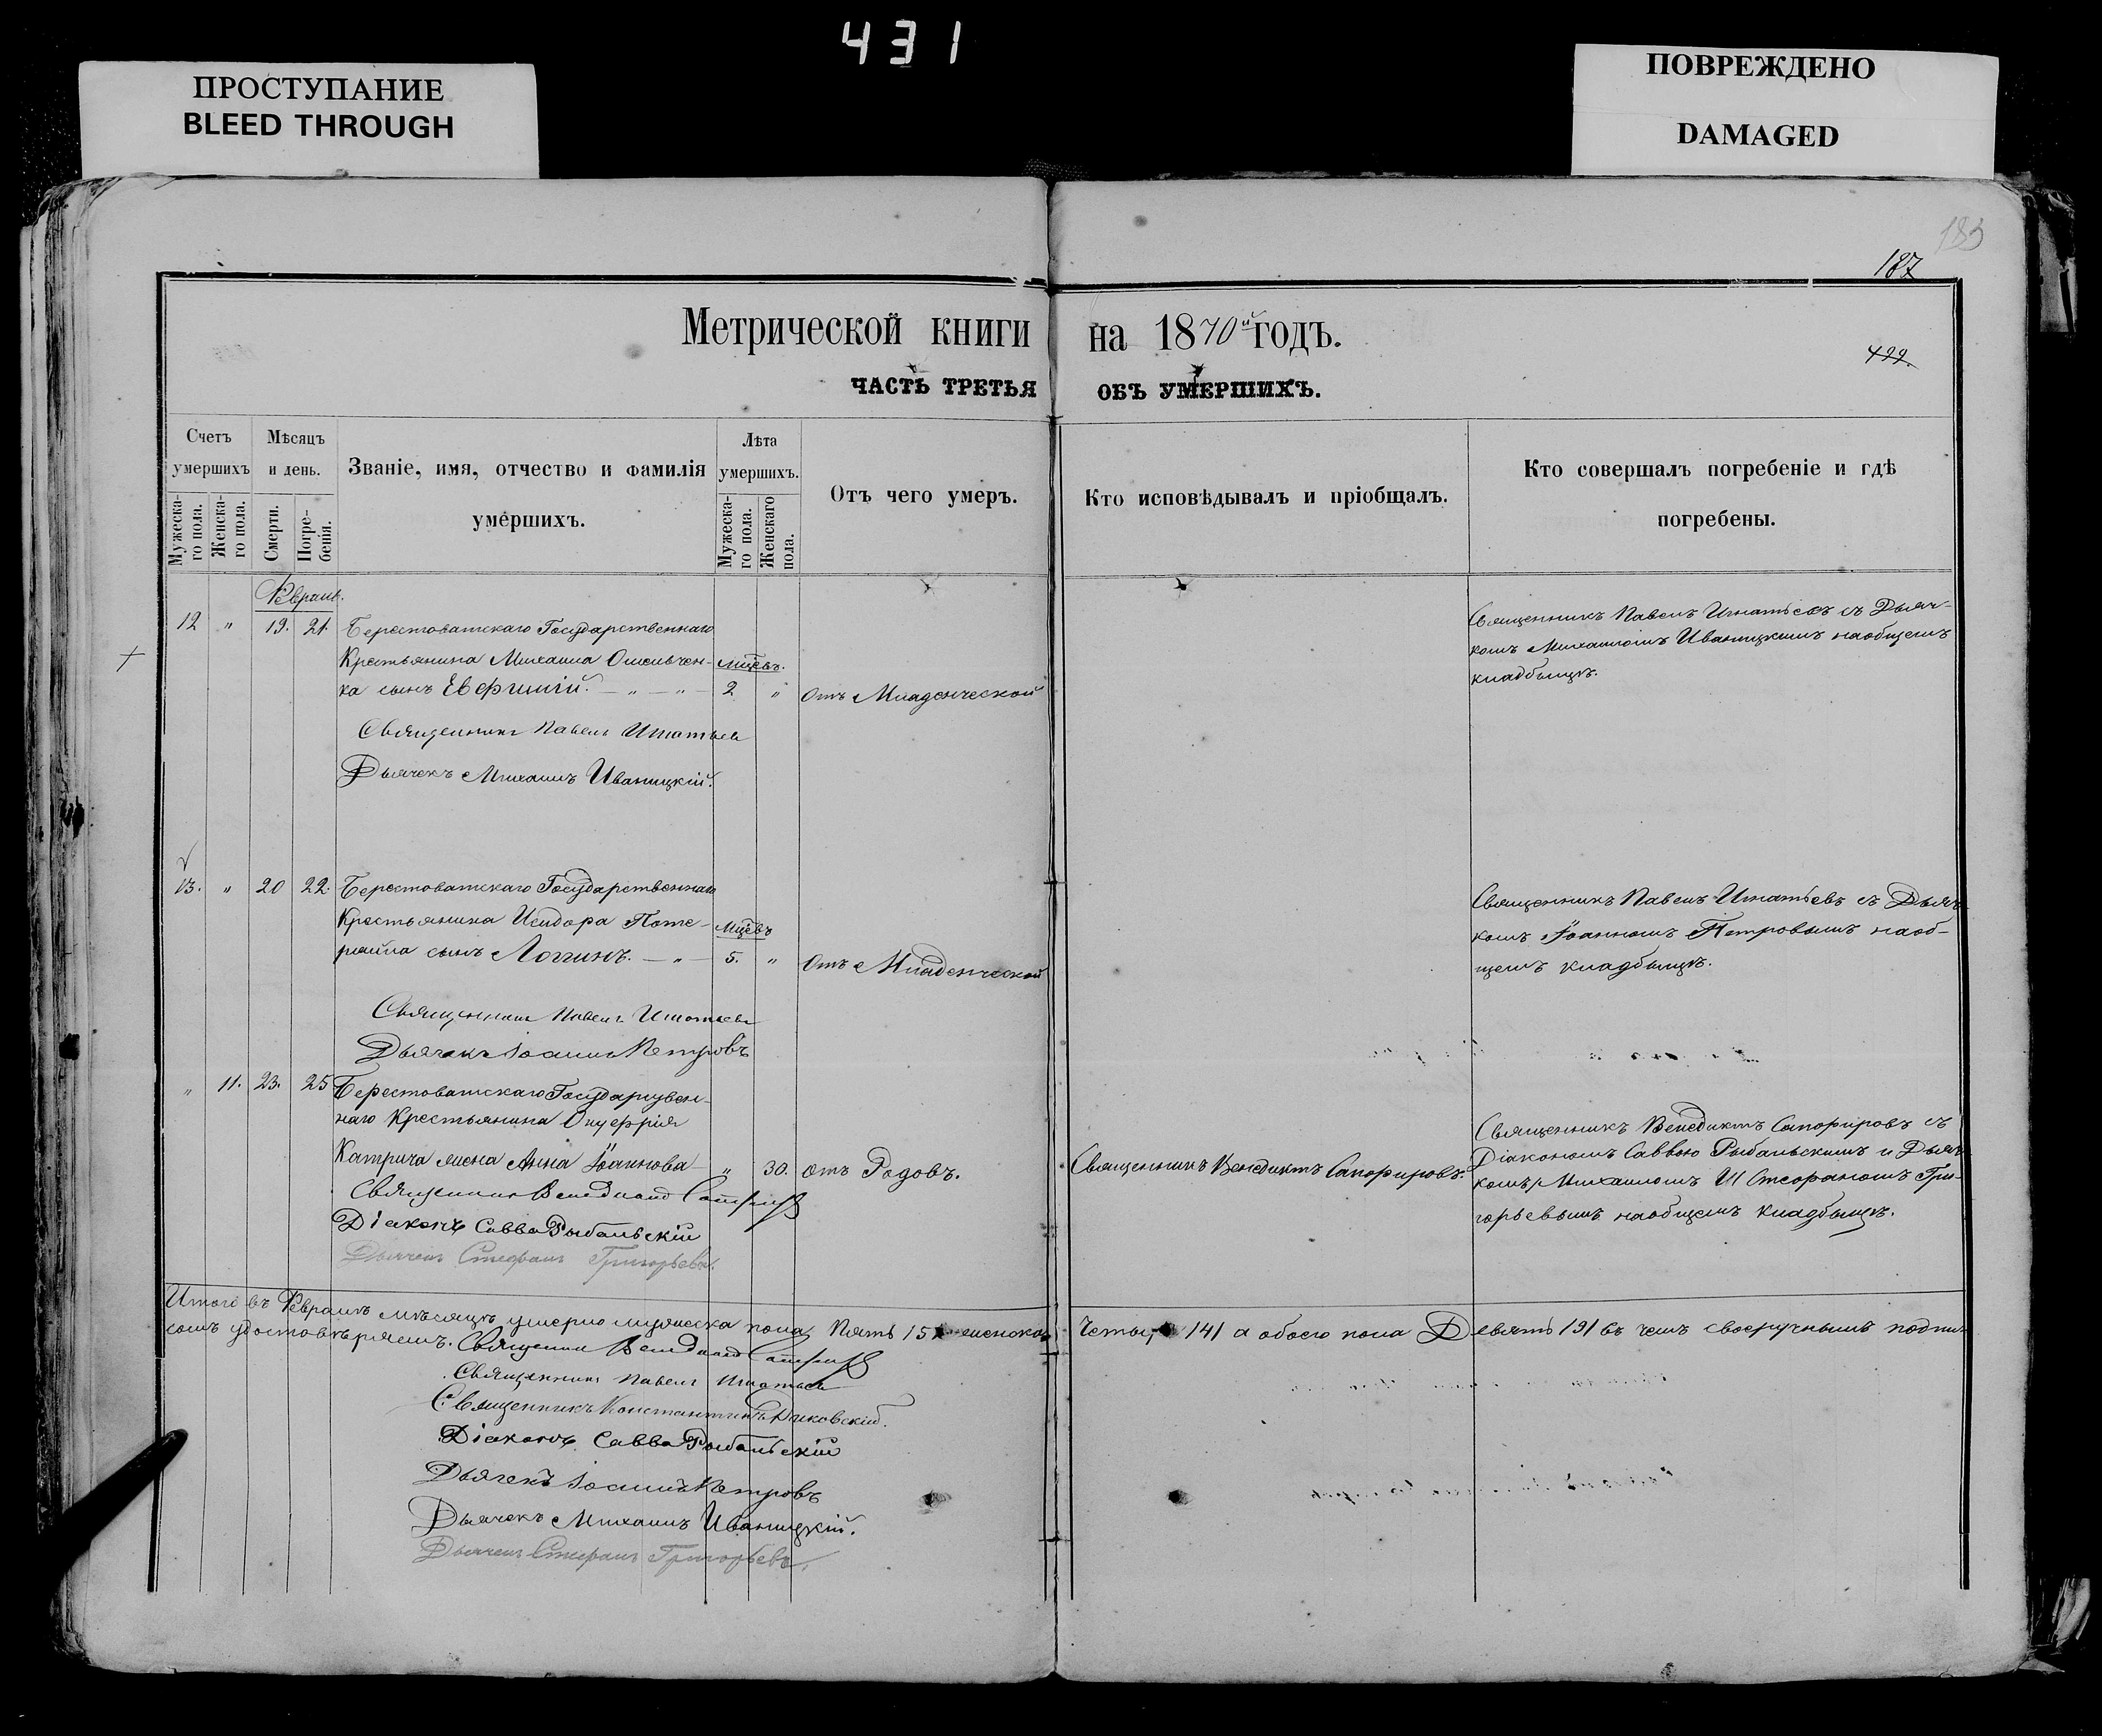 431
ПРОСТУПАНИЕ
BLEED THROUGH
ПОВРЕЖДЕНО
DAMAGED
183
187
Метрической книги на 1870й годъ.
499
ЧАСТЬ ТРЕТЬЯ ОБЪ УМЕРШИХЪ.
Счетъ умершихъ
Мужеска-го пола.
Женска-го пола.
Мѣсяцъ и день.
Смерти.
Погре-бенія.
Званіе, имя, отчество и фамилія умершихъ.
Лѣта умершихъ.
Мужеска-го пола.
Женскаго пола.
Отъ чего умеръ.
Кто исповѣдывалъ и пріобщалъ.
Кто совершалъ погребеніе и гдѣ погребены.
12 " 19. 21. Берестоватскаго Государственнаго
Крестьянина Михаила
ка сынъ Евфимій. — " — " — 2 " Отъ Младенческой
Священникъ Павелъ Игнатьевъ съ Дьяч-
комъ Михаиломъ Иваницкимъ на общемъ
кладбищѣ.
Священникъ Павелъ Игнатьевъ
Дьячекъ Михаилъ Иваницкій.
13. " 20 22. Берестоватскаго Государственнаго
Крестьянина Исидора Поте-
сынъ Логгинъ. — " — 5. " Отъ Младенческой
Священникъ Павелъ Игнатьевъ съ Дьяч-
комъ Іоанномъ Петровымъ на об-
щемъ кладбищѣ.
Священникъ Павелъ Игнатьевъ
Дьячекъ Іоаннъ Петровъ
" 11. 23. 25 Берестоватскаго Государствен-
наго Крестьянина Онуфрія
Катрича жена Анна Іоаннова " 30. отъ Родовъ.
Священникъ Венедиктъ Сапфировъ.
Священникъ Венедиктъ Сапфировъ съ
Діакономъ Саввою Рыбальскимъ и Дьяч-
комъ Стефаномъ Гри-
горьевымъ на общемъ кладбищѣ.
Священникъ Венедиктъ
Діаконъ Савва Рыбальскій
Дьячекъ Стефанъ Григорьевъ.
Итого въ Февралѣ мѣсяцѣ умерло мужеска пола Пять /5/ женска Четыре /4/ а обоего пола Девять /9/ въ чемъ своеручнымъ подпи-
сомъ удостовѣряемъ. Священникъ Венедиктъ
Священникъ Павелъ Игнатьевъ
Священникъ Константинъ
Діаконъ Савва Рыбальскій
Дьячекъ Іоаннъ Петровъ
Дьячекъ Михаилъ Иваницкій.
Дьячекъ Стефанъ Григорьевъ.